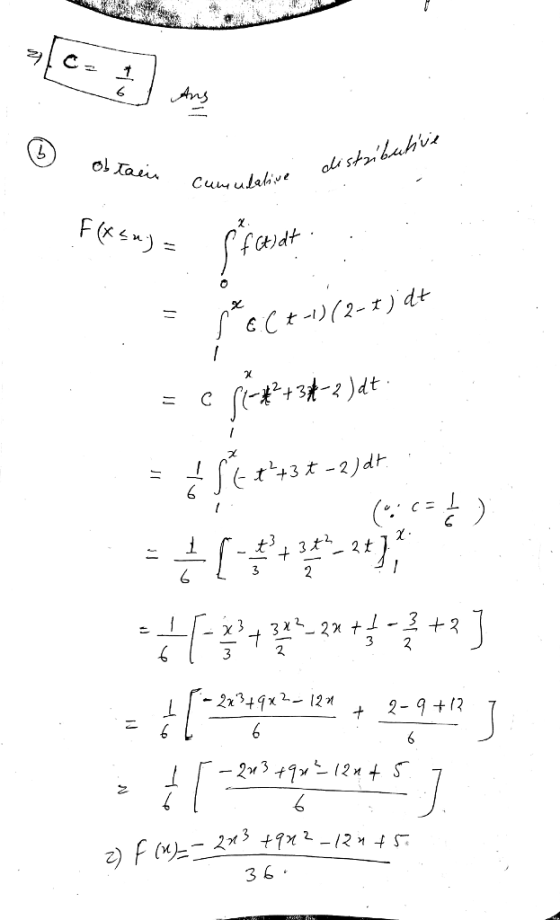 ⇒ C = 1/6 Ans
(b) obtain cumulative distributive
F(x≤x) = ∫₀ˣ f(t)dt.
= ∫₁ˣ C(t-1)(2-t)dt
= C ∫₁ˣ (-t²+3t-2)dt.
= 1/6 ∫₁ˣ (-t²+3t-2)dt
(∵ C = 1/6)
= 1/6 [-t³/3 + 3t²/2 - 2t]₁ˣ.
= 1/6 [-x³/3 + 3x²/2 - 2x + 1/3 - 3/2 + 2]
= 1/6 [(-2x³+9x²-12x)/6 + (2-9+12)/6]
= 1/6 [(-2x³+9x²-12x+5)/6].
⇒ F(x) = (-2x³+9x²-12x+5)/36.